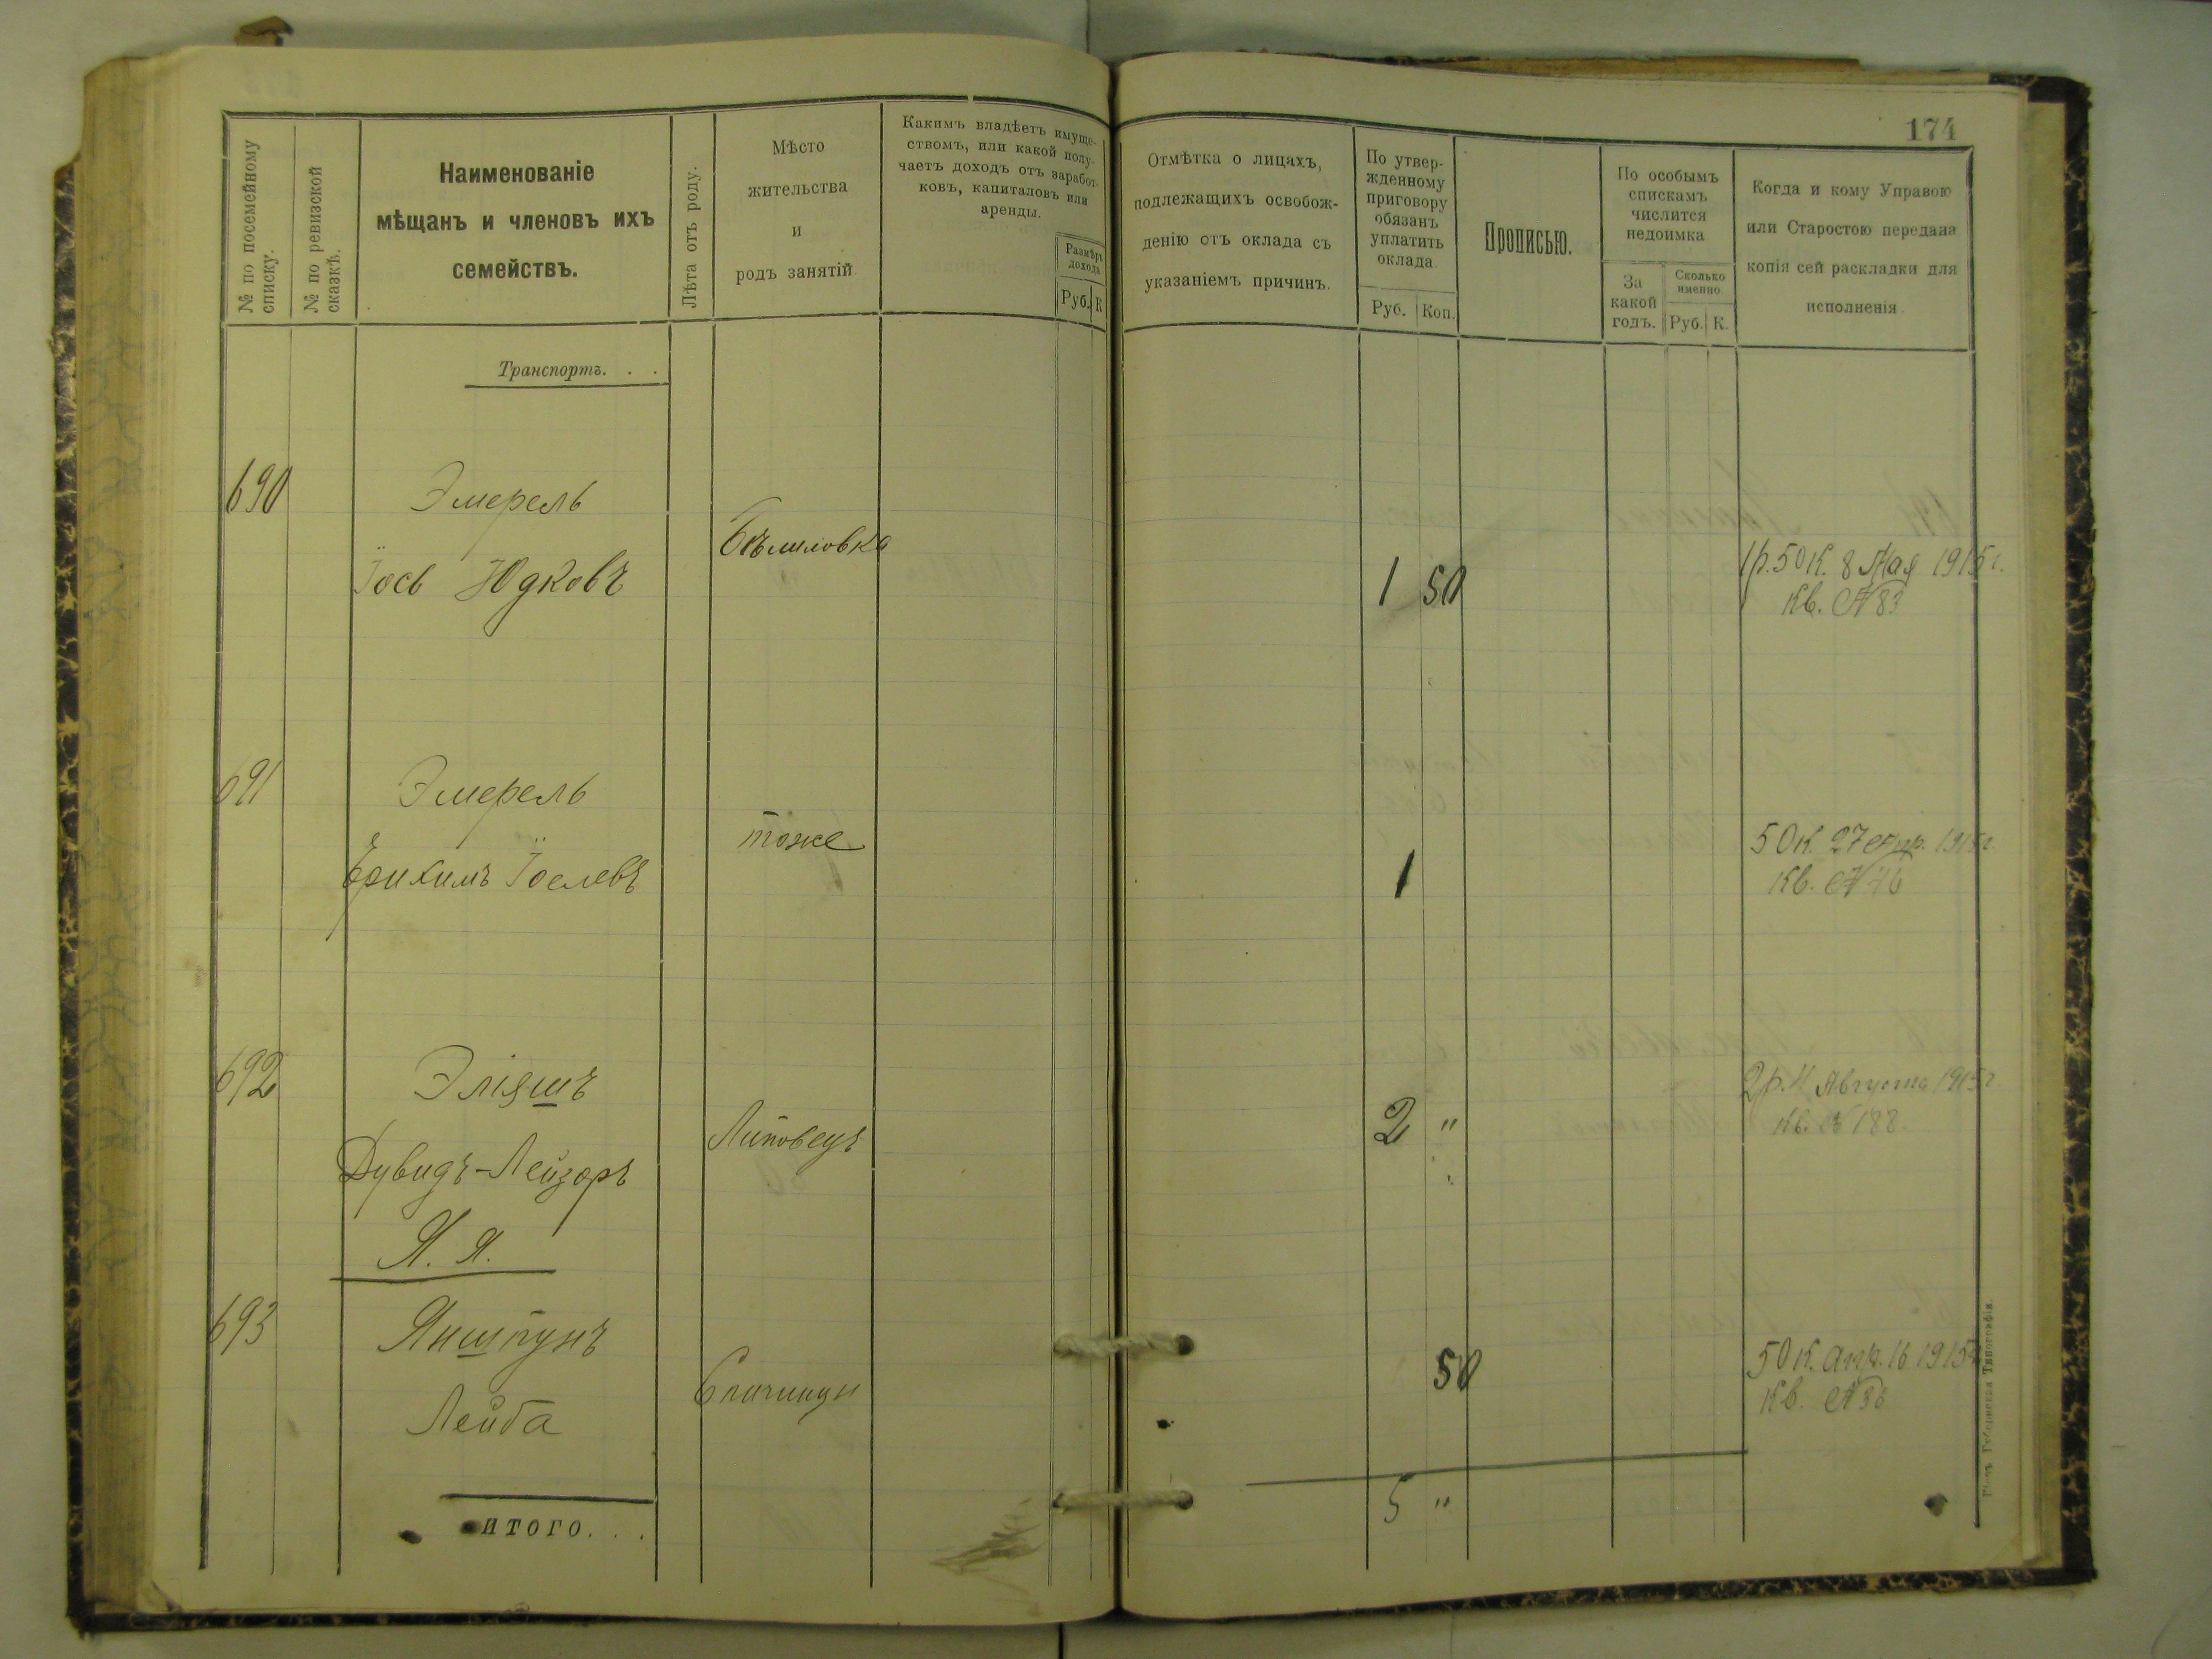 174
№ по посемейному
списку.
№ по ревизской
сказкѣ.
Наименованіе
мѣщанъ и членовъ ихъ
семействъ.
Лѣта отъ роду.
Мѣсто
жительства
и
родъ занятій
Какимъ владѣетъ имуще-
ствомъ, или какой полу-
чаетъ доходъ отъ заработ-
ковъ, капиталовъ или
аренды.
Размѣръ
дохода
Руб. К
Отмѣтка о лицахъ,
подлежащихъ освобож-
денію отъ оклада съ
указаніемъ причинъ.
По утвер-
жденному
приговору
обязанъ
уплатить
оклада
Руб. Коп.
Прописью.
По особымъ
спискамъ
числится
недоимка
За
какой
годъ.
Сколько
именно
Руб. К.
Когда и кому Управою
или Старостою передана
копія сей раскладки для
исполненія.
Транспортъ. . .
690 Эмерель
Іось Юдковъ Бѣлиловка 1 50 1р. 50 к. 8 Мая 1915 г.
Кв. № 83
691 Эмерель
Іоселевъ тоже 1 50 к. 27 апр. 1915 г.
Кв. №
692 Эліяшъ
Дувидъ-Лейзоръ Липовецъ 2 " 2 р. Августа 1915 г
Кв. № 188.
Я. я.
693 Янишпунъ
Лейба 50 50 к. апр. 16 1915 г
Кв. №
ИТОГО. . . 5 "